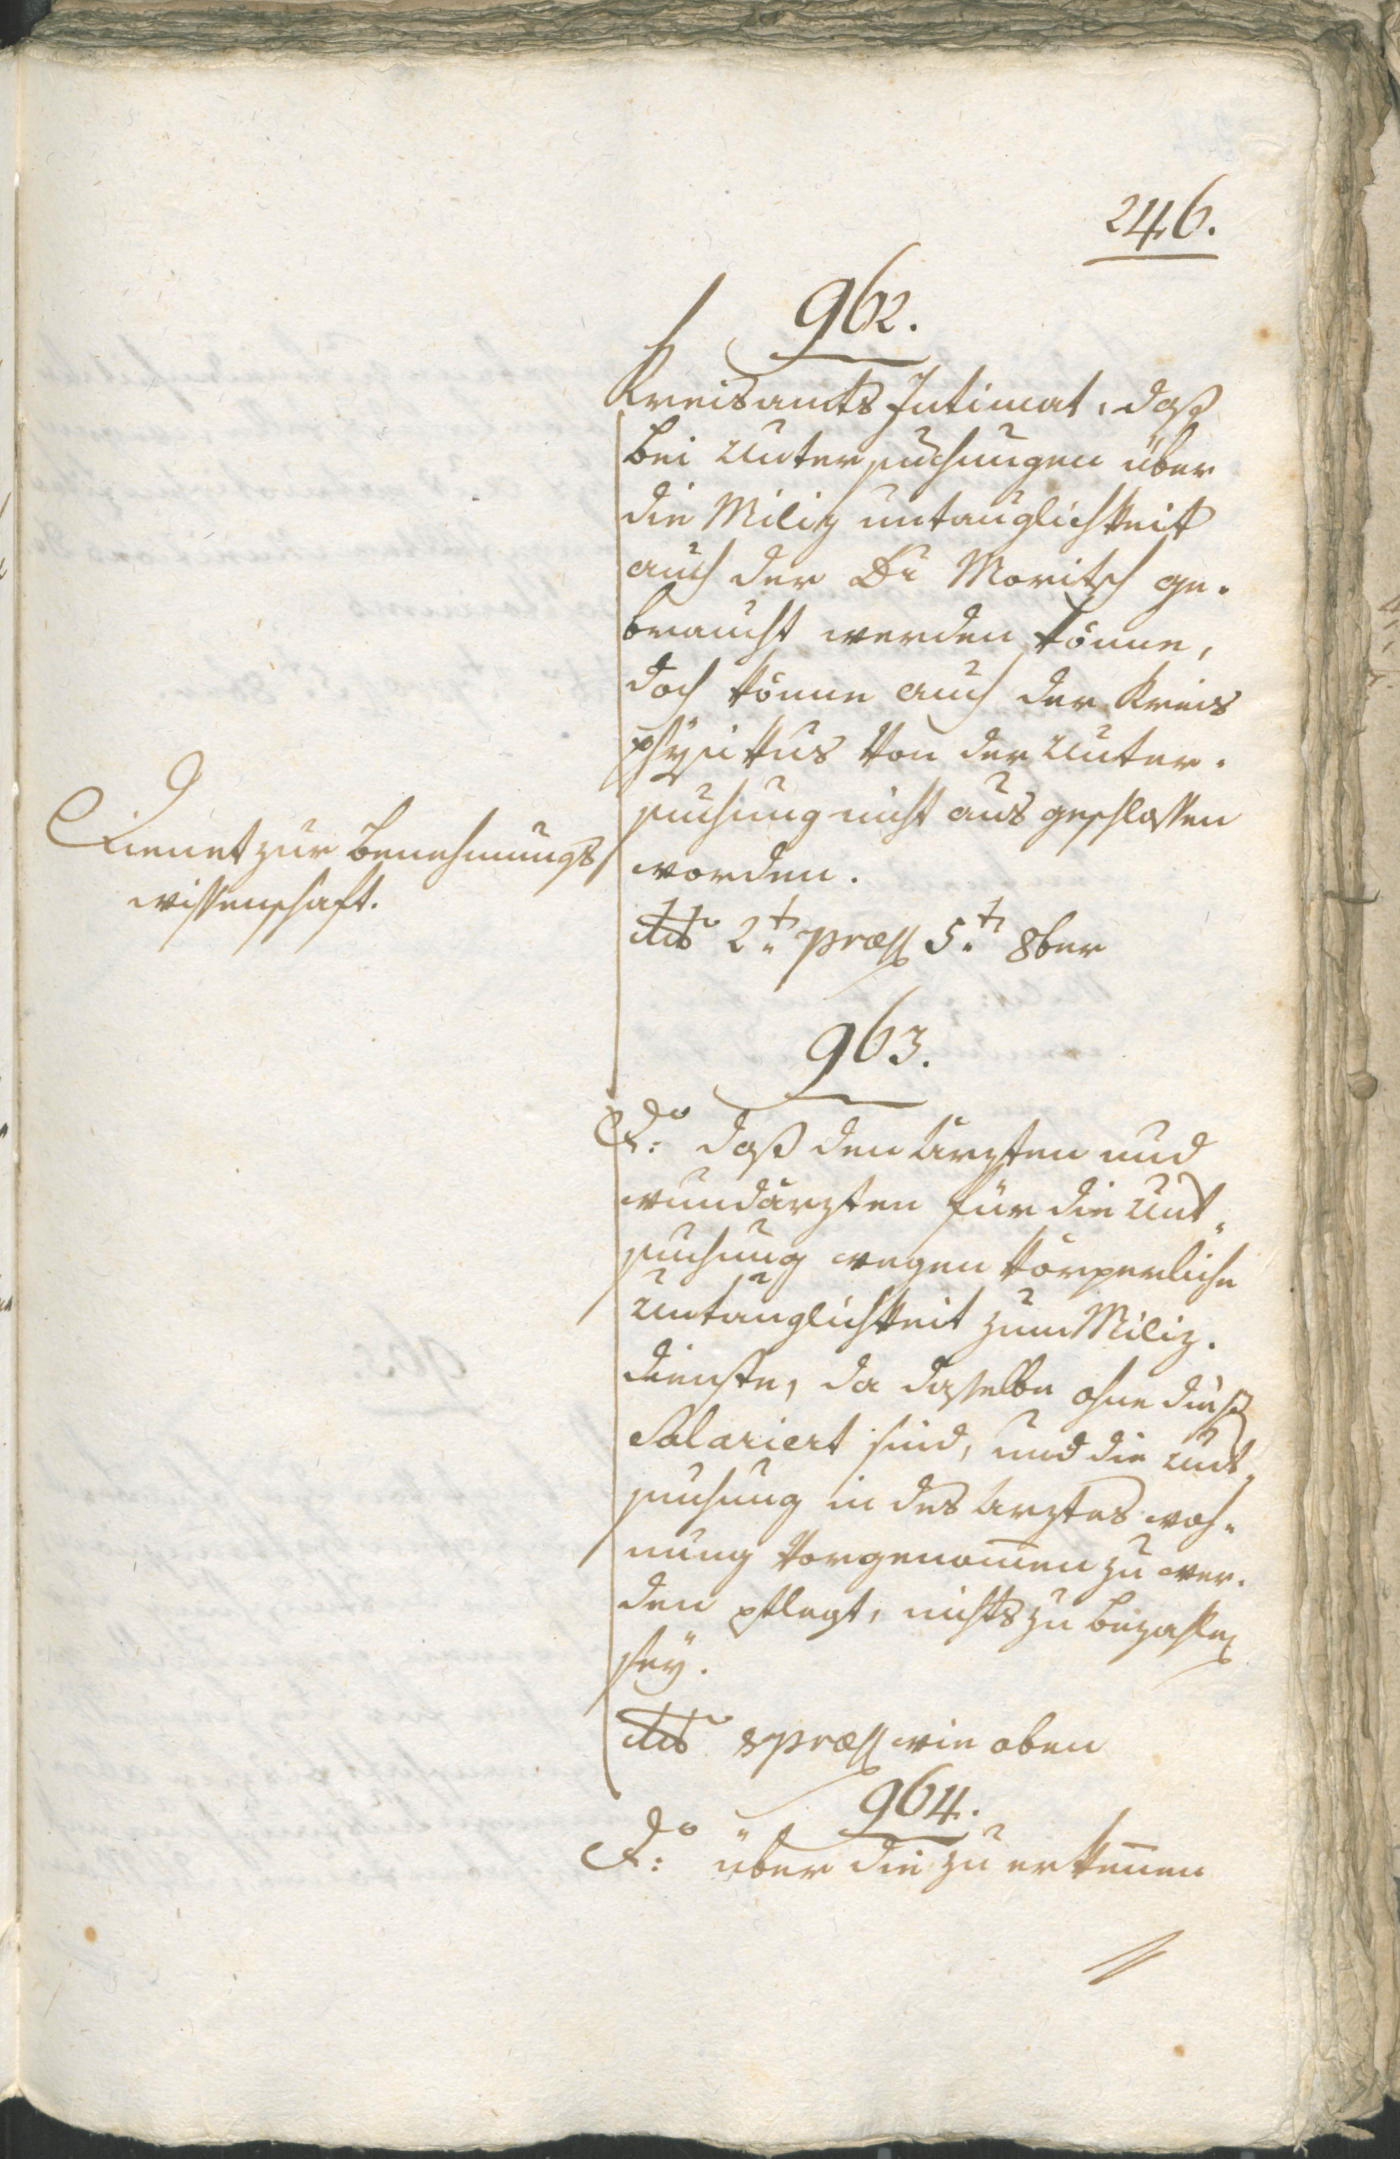 246.
962.
Kreisamts Intimat, daß
bei Untersuchungen über
die Miliz untauglichkeit
auch der Dr Moritsch ge-
braucht werden könne,
doch könne auch der Kreis
physikus von der Unter-
suchung nicht aus geschlossen
worden.
Dienet zur Benehmungs
wissenschaft.
dto 2t. præs 5t. 8ber
963.
Do: daß den Ärzten und
wundärzten für die Unt.
suchung wegen körperliche
Untauglichkeit zum Miliz.
dienste, da dasselbe ohne dieß
Salariert sind, und die Unt.
suchung in des Arztes woh-
nung vorgenom̄en zu wer-
den pflegt, nichts zu bezahlen
sey.
dto & præs wie oben
964.
Do: über die zu erken̄en